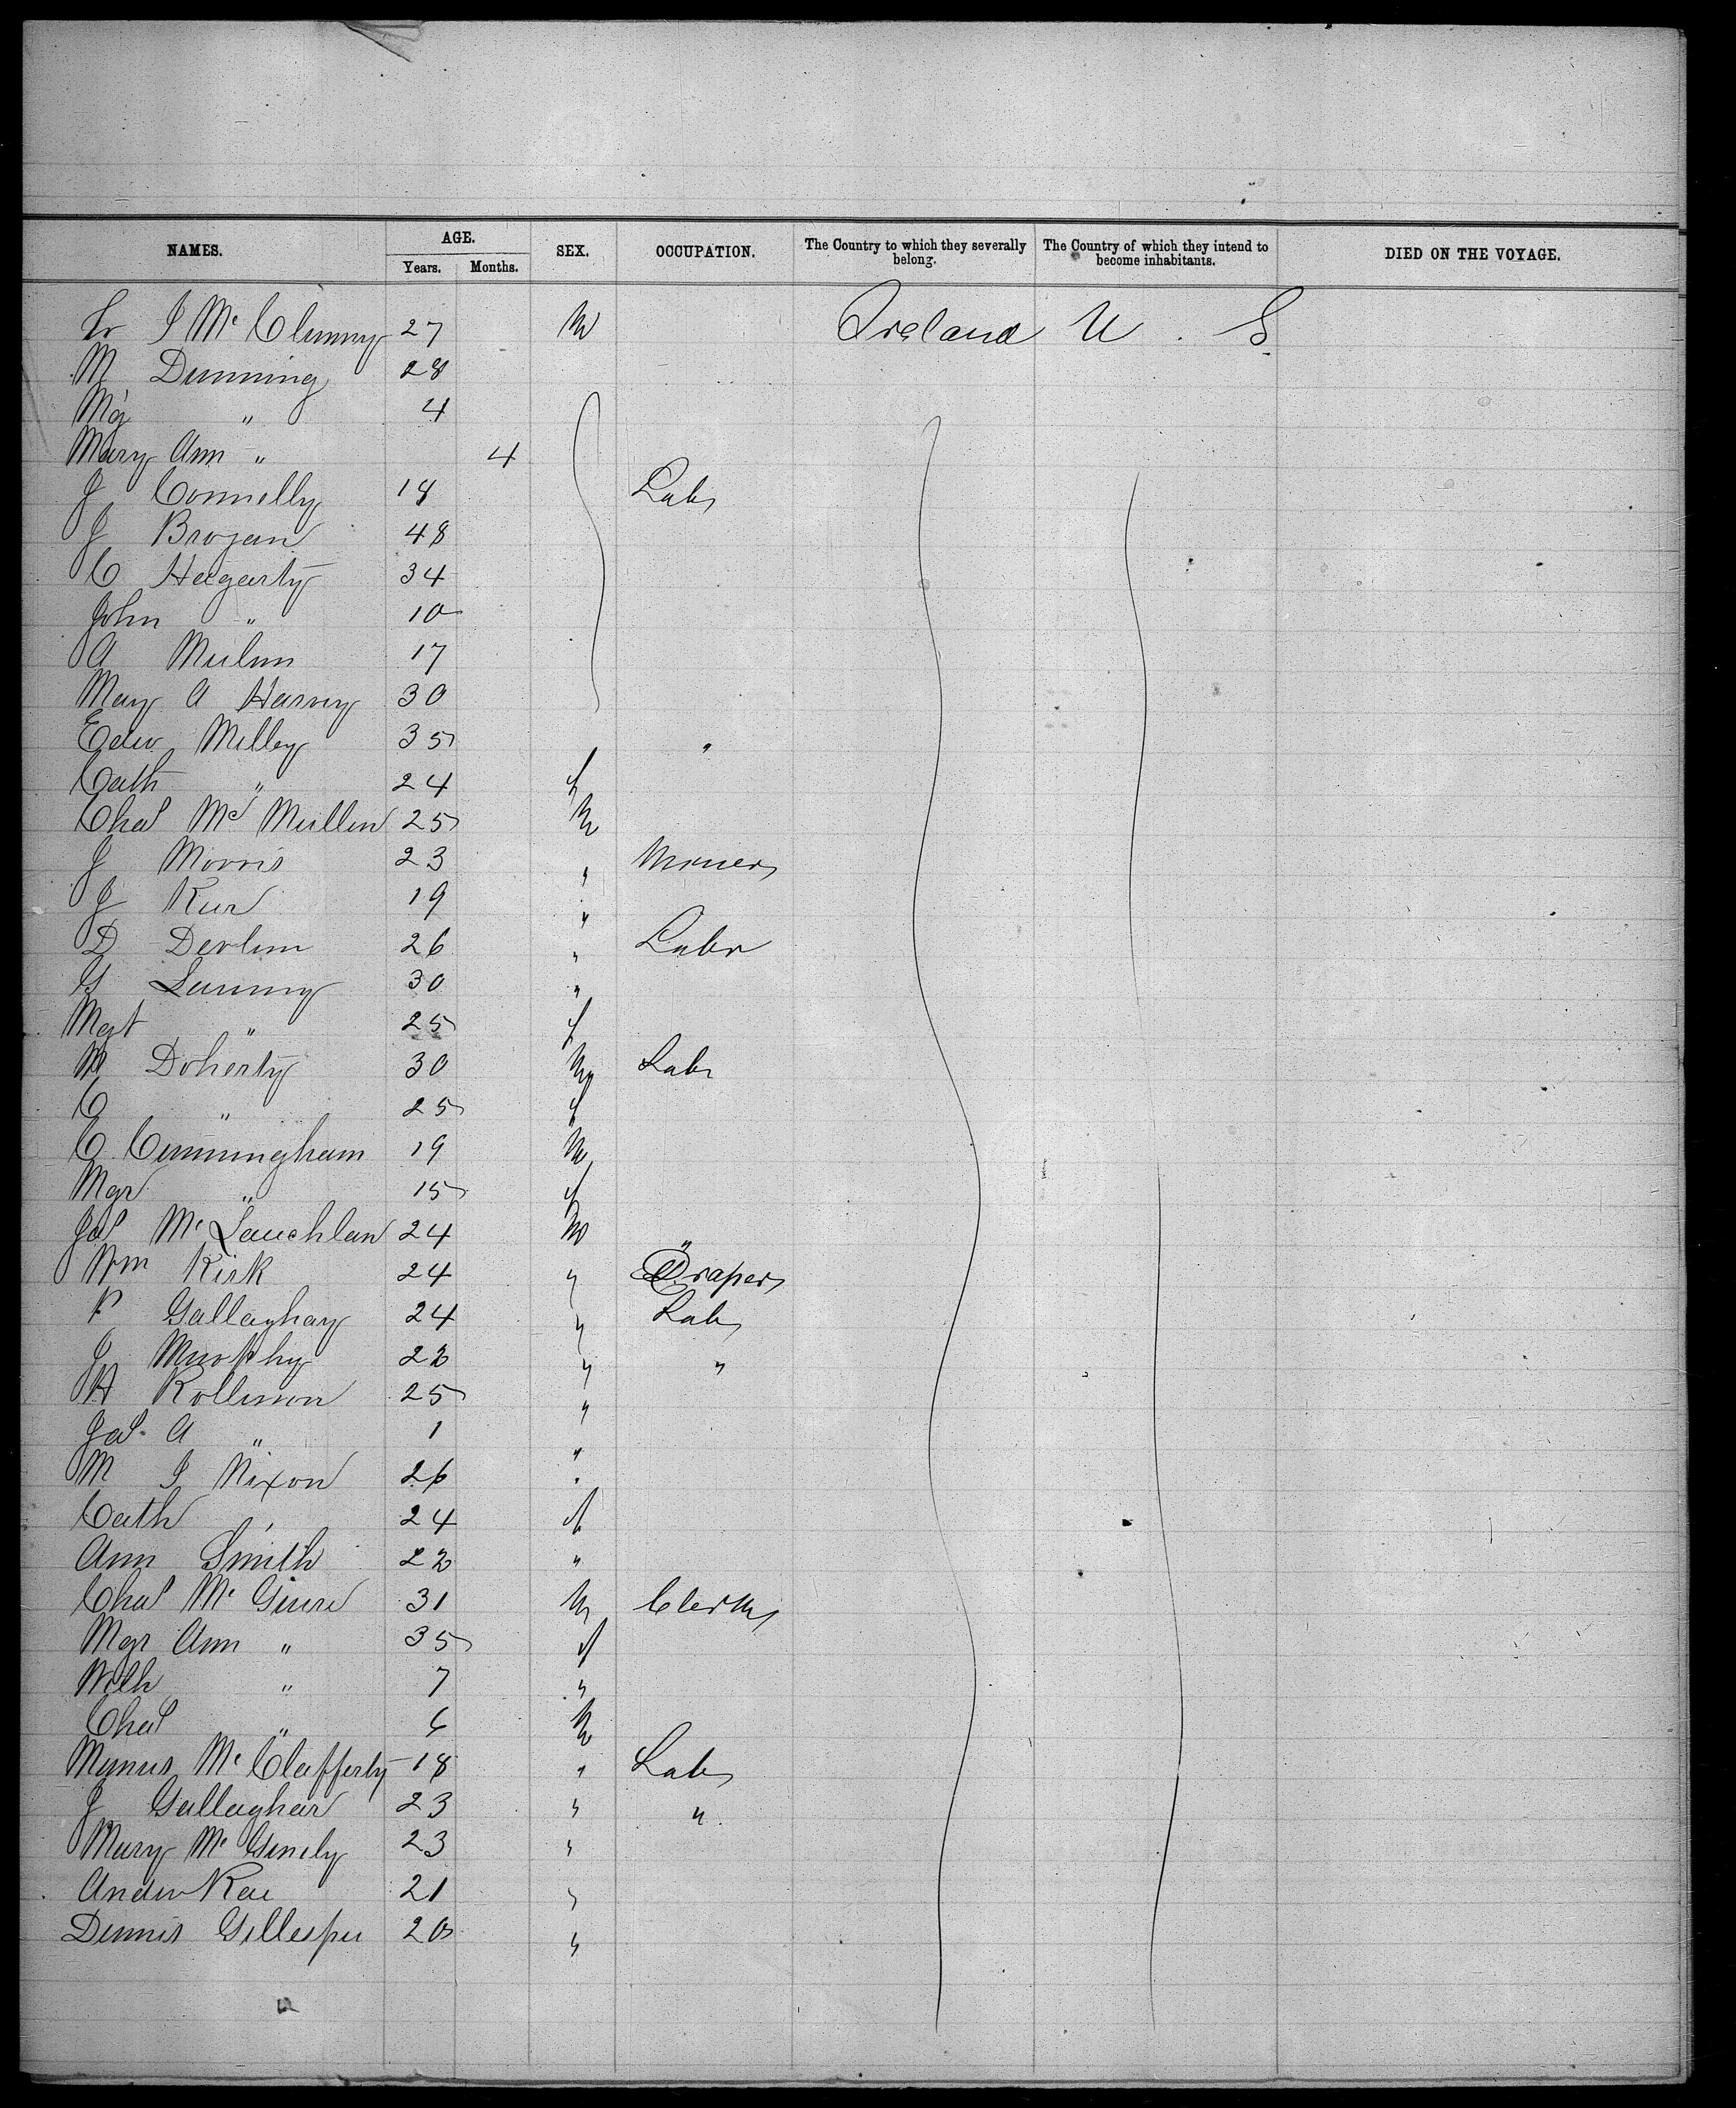 NAMES. AGE. SEX. OCCUPATION. The Country to which they severally belong. The Country of which they intend to become inhabitants. DIED ON THE VOYAGE.
Years. Months.
27 M Ireland U. S.
M Dunning 28
Mg " 4
Mary Ann " 4
J Connelly 18 Labr
J Brogan 48
C Hagarty 34
John " 10
A 17
Mary A Harvey 30
Edw Milley 35 "
Cath " 24 f
Chas Mc Mullen 25 M
J Morris 23 "
J 19 "
D Devlin 26 " Labr
G 30 "
Mgt " 25 f
M Doherty 30 M Labr
C " 25 f
C Cunningham 19 M
Mgr " 15 f
Jas Mc Lauchlan 24 M "
Wm Kirk 24 " Draper
P Gallaghar 24 " Labr
J Murphy 22 " "
H 25 "
Jas. A " 1 "
M J Nixon 26 "
Cath " 24 f
Ann Smith 22 "
Chas Mc 31 M Clerk
Mgr Ann " 35 f
" 7 "
Chas " 6 M
Manus Mc Clafferty 18 " Labr
J Gallaghar 23 " "
Mary Mc Ginely 23 "
Andw Rae 21 "
Dennis Gillespie 20 "